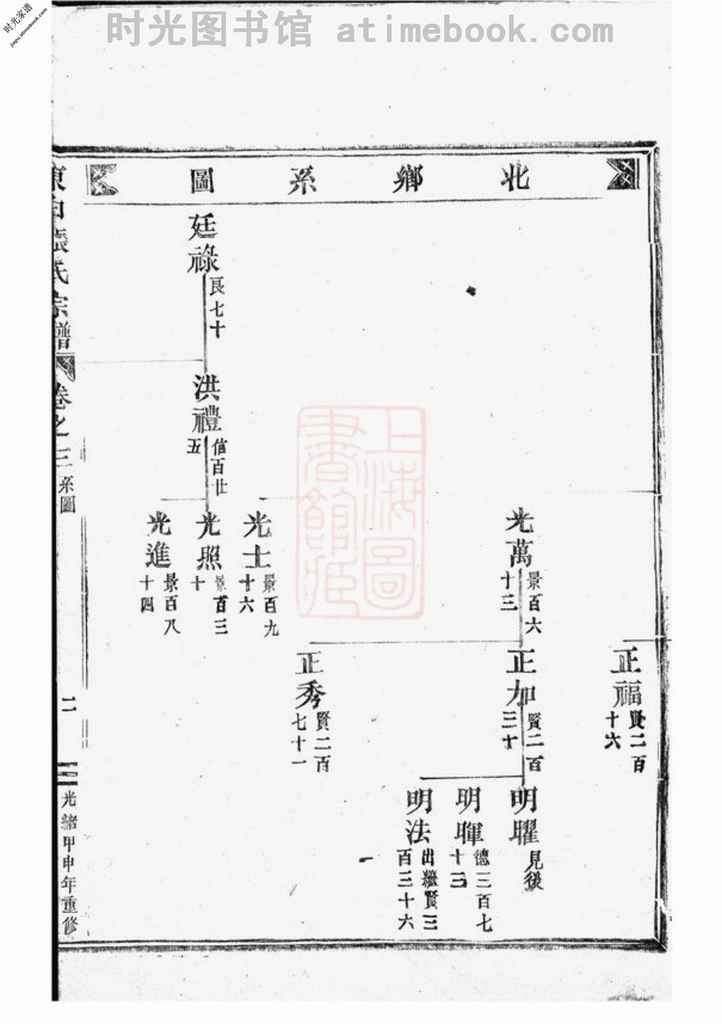 时光图书馆 atimebook.com
时光家谱
jiapu.atimebook.com
北鄉系圖
正福
賢二百
十六
光萬
景百六
十三
正加
賢二百
三十
明耀
見後
明暉
德三百七
十三
明法
出繼賢三
百三十六
正秀
賢二百
七十一
光士
景百九
十六
廷祿
良七十
洪禮
信百廿
五
光照
景百三
十
光進
景百八
十四
東白張氏宗譜
卷之三
系圖
二
光緒甲申年重修
上海圖
書館藏